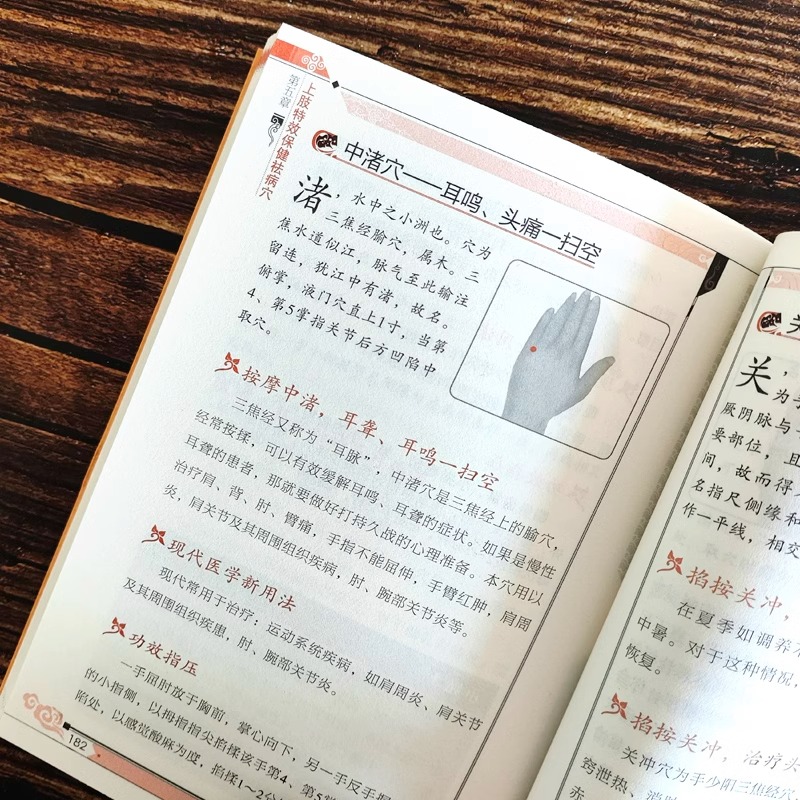 第五章
上肢特效保健祛病穴
中渚穴——耳鸣、头痛一扫空
渚，水中之小洲也。穴为
三焦经腧穴，属木。三
焦水道似江，脉气至此输注
留连，犹江中有渚，故名。
俯掌，液门穴直上1寸，当第
4、第5掌指关节后方凹陷中
取穴。
按摩中渚，耳聋、耳鸣一扫空
三焦经又称为“耳脉”，中渚穴是三焦经上的腧穴，
经常按揉，可以有效缓解耳鸣、耳聋的症状。如果是慢性
耳聋的患者，那就要做好打持久战的心理准备。本穴用以
治疗肩、背、肘、臂痛，手指不能屈伸，手臂红肿，肩周
炎，肩关节及其周围组织疾病，肘、腕部关节炎等。
现代医学新用法
现代常用于治疗：运动系统疾病，如肩周炎、肩关节
及其周围组织疾患，肘、腕部关节炎。
功效指压
一手屈肘放于胸前，掌心向下，另一手反手握
的小指侧，以拇指指尖掐揉该手第4、第5掌
陷处，以感觉酸麻为度，掐揉1~2分
182
关
关，
为手
厥阴脉与
要部位，且
间，故而得
名指尺侧缘和
作一平线，相交
掐按关冲，
在夏季如调养不
中暑。对于这种情况，
恢复。
掐按关冲，治疗头
关冲穴为手少阳三焦经穴
窍泄热、消
赤